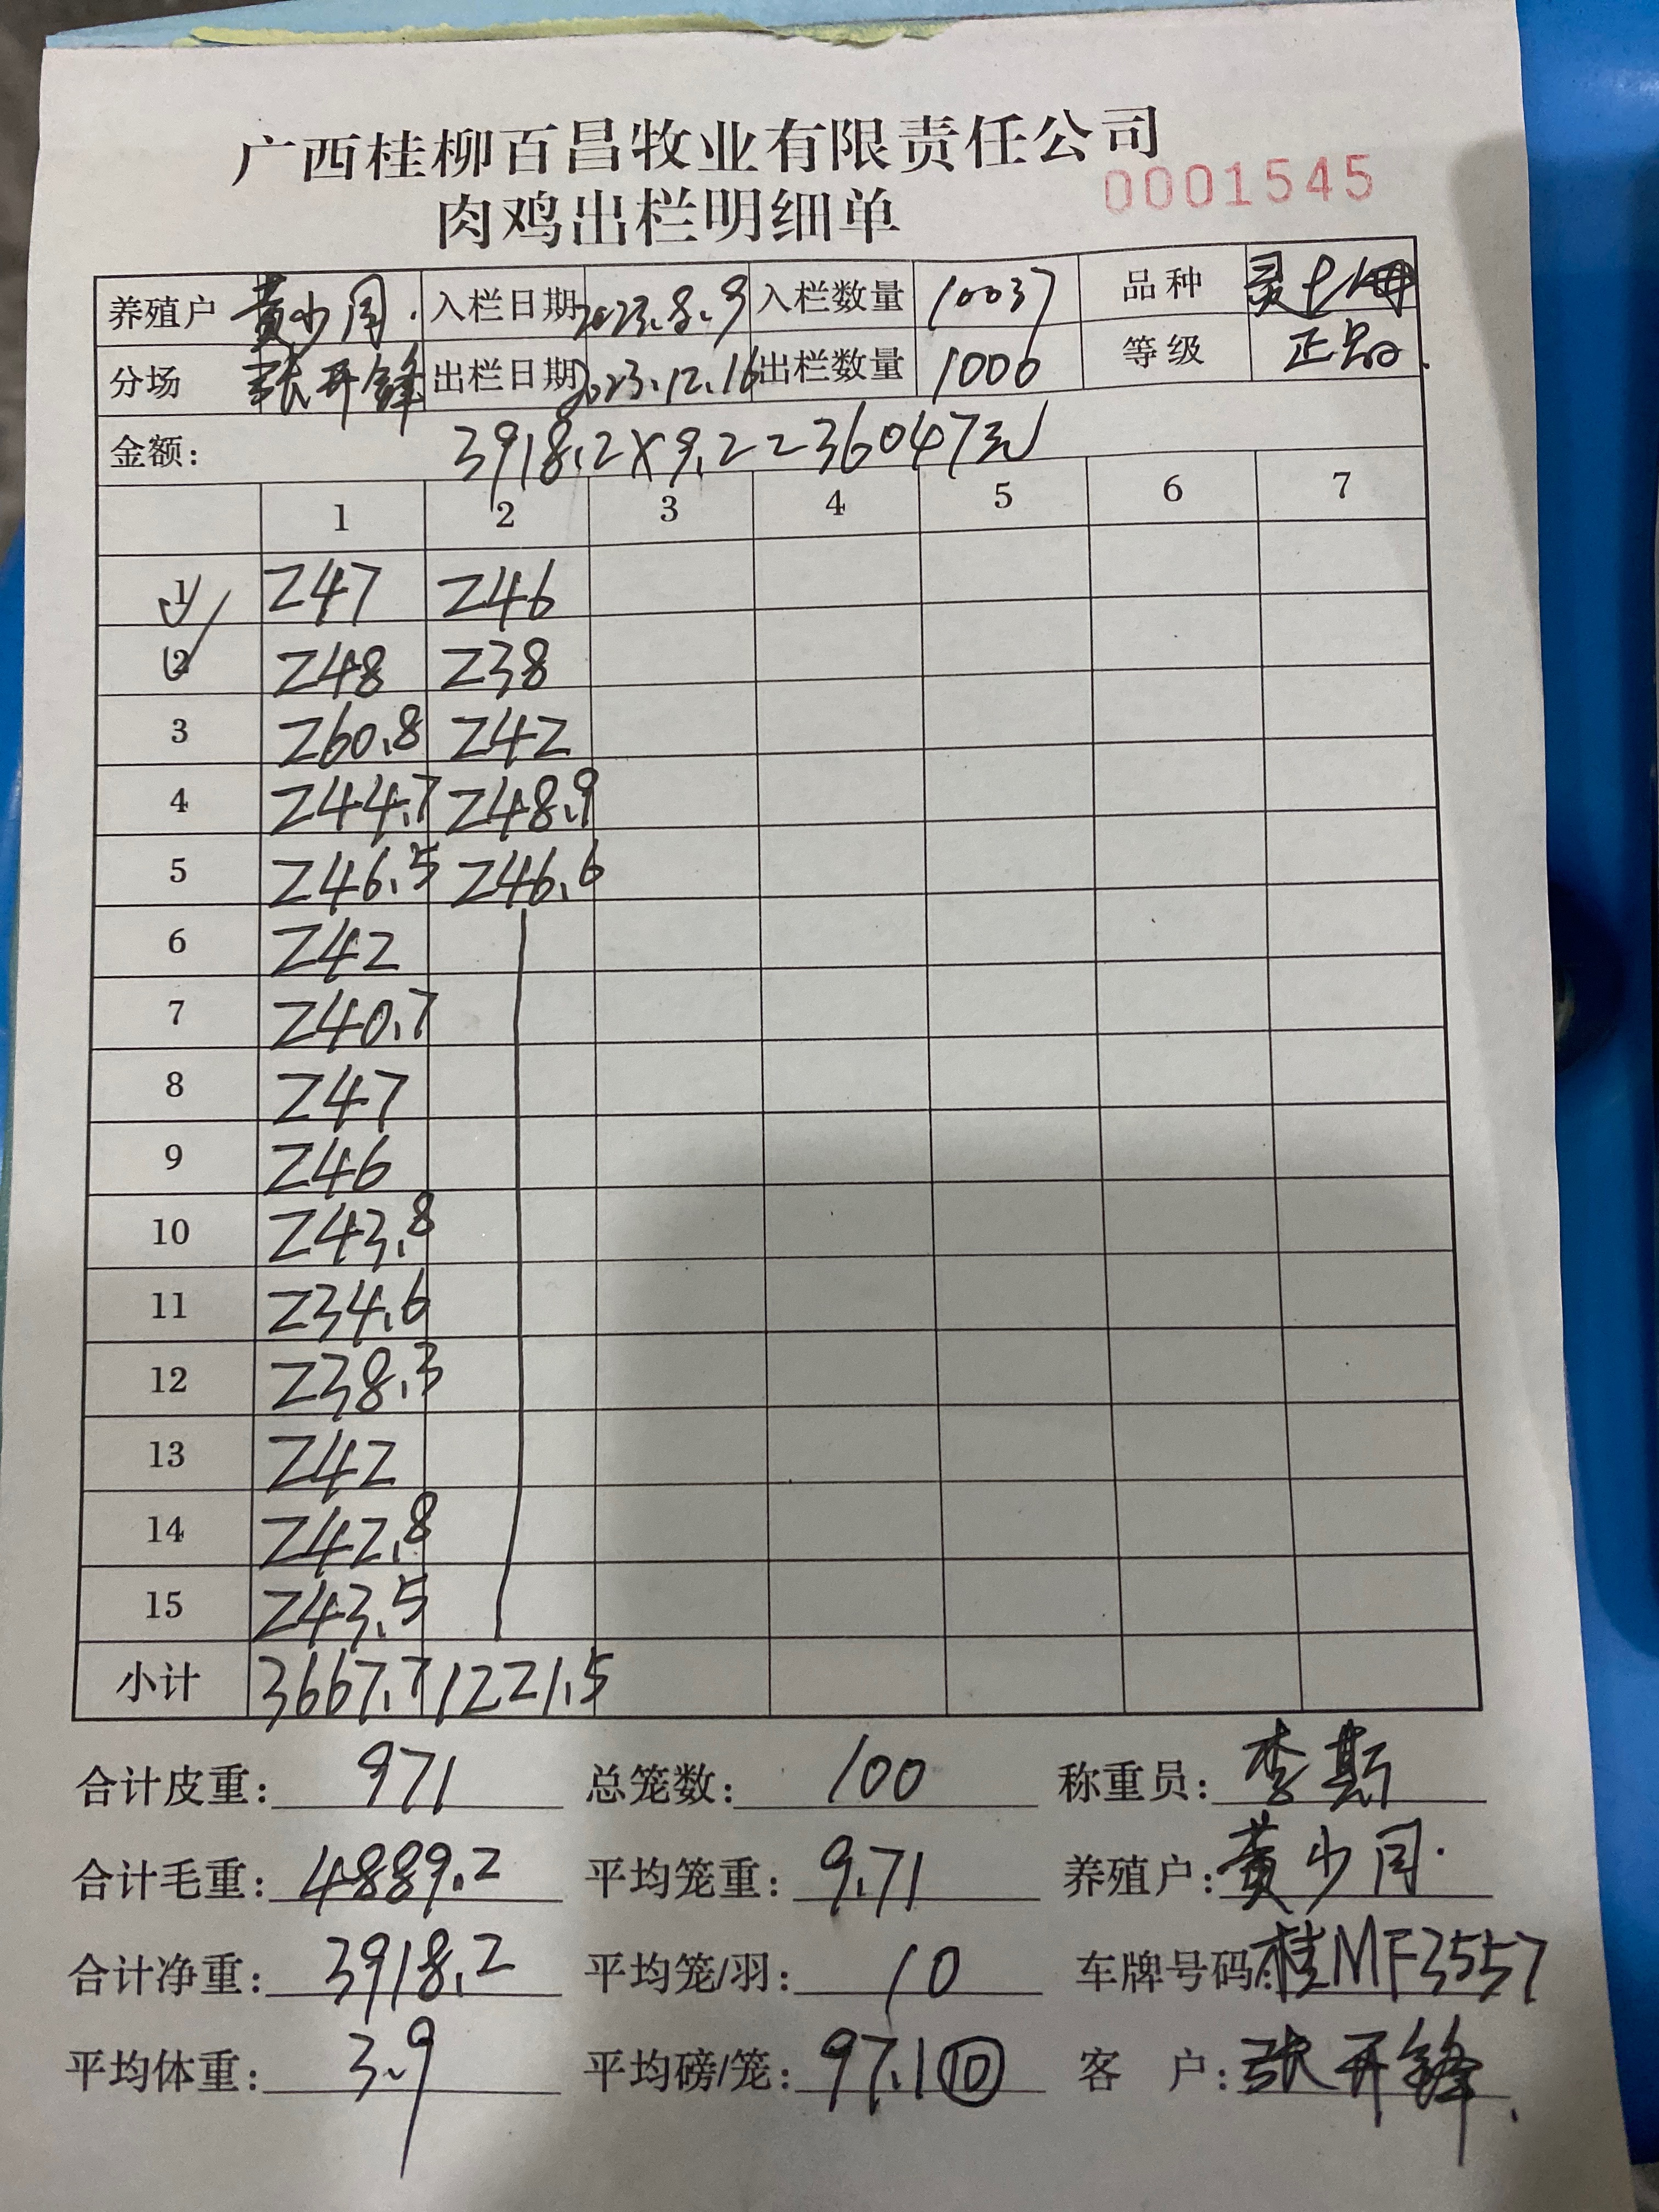 广西桂柳百昌牧业有限责任公司
肉鸡出栏明细单 0001545
养殖户 黄少同 入栏日期 2023.8.9 入栏数量 10037 品种
分场 张开锋 出栏日期 2023.12.16 出栏数量 1000 等级 正品
金额: 3918.2×9.2=36047元
1 2 3 4 5 6 7
1 247 246
2 248 238
3 260.8 242
4 244.7 248.9
5 246.5 246.6
6 242
7 240.7
8 247
9 246
10 243.8
11 234.6
12 238.3
13 242
14 242.8
15 243.5
小计 3667.7 1221.5
合计皮重: 971 总笼数: 100 称重员: 李斯
合计毛重: 4889.2 平均笼重: 9.71 养殖户: 黄少同
合计净重: 3918.2 平均笼/羽: 10 车牌号码: 桂MF3557
平均体重: 3.9 平均磅/笼: 97.1 ⑩ 客 户: 张开锋